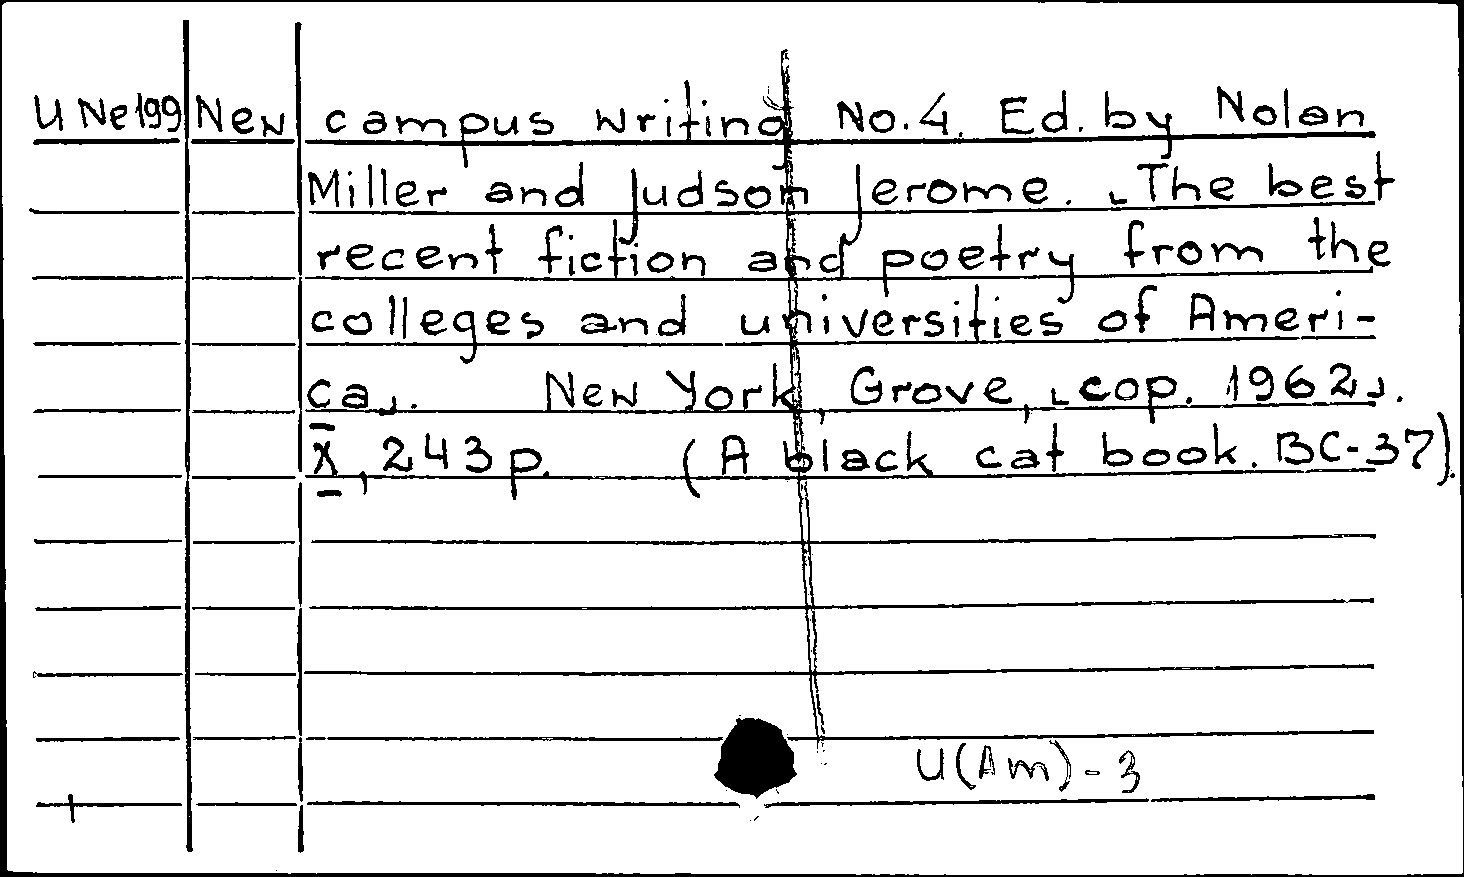 U Ne 199 New campus writing No.4. Ed. by Nolan
Miller and Judson Jerome. ⌞The best
recent fiction and poetry from the
colleges and universities of Ameri-
ca⌟. New York, Grove, ⌞cop. 1962⌟.
X, 243 p. (A black cat book. BC-37).
U(Am)-3